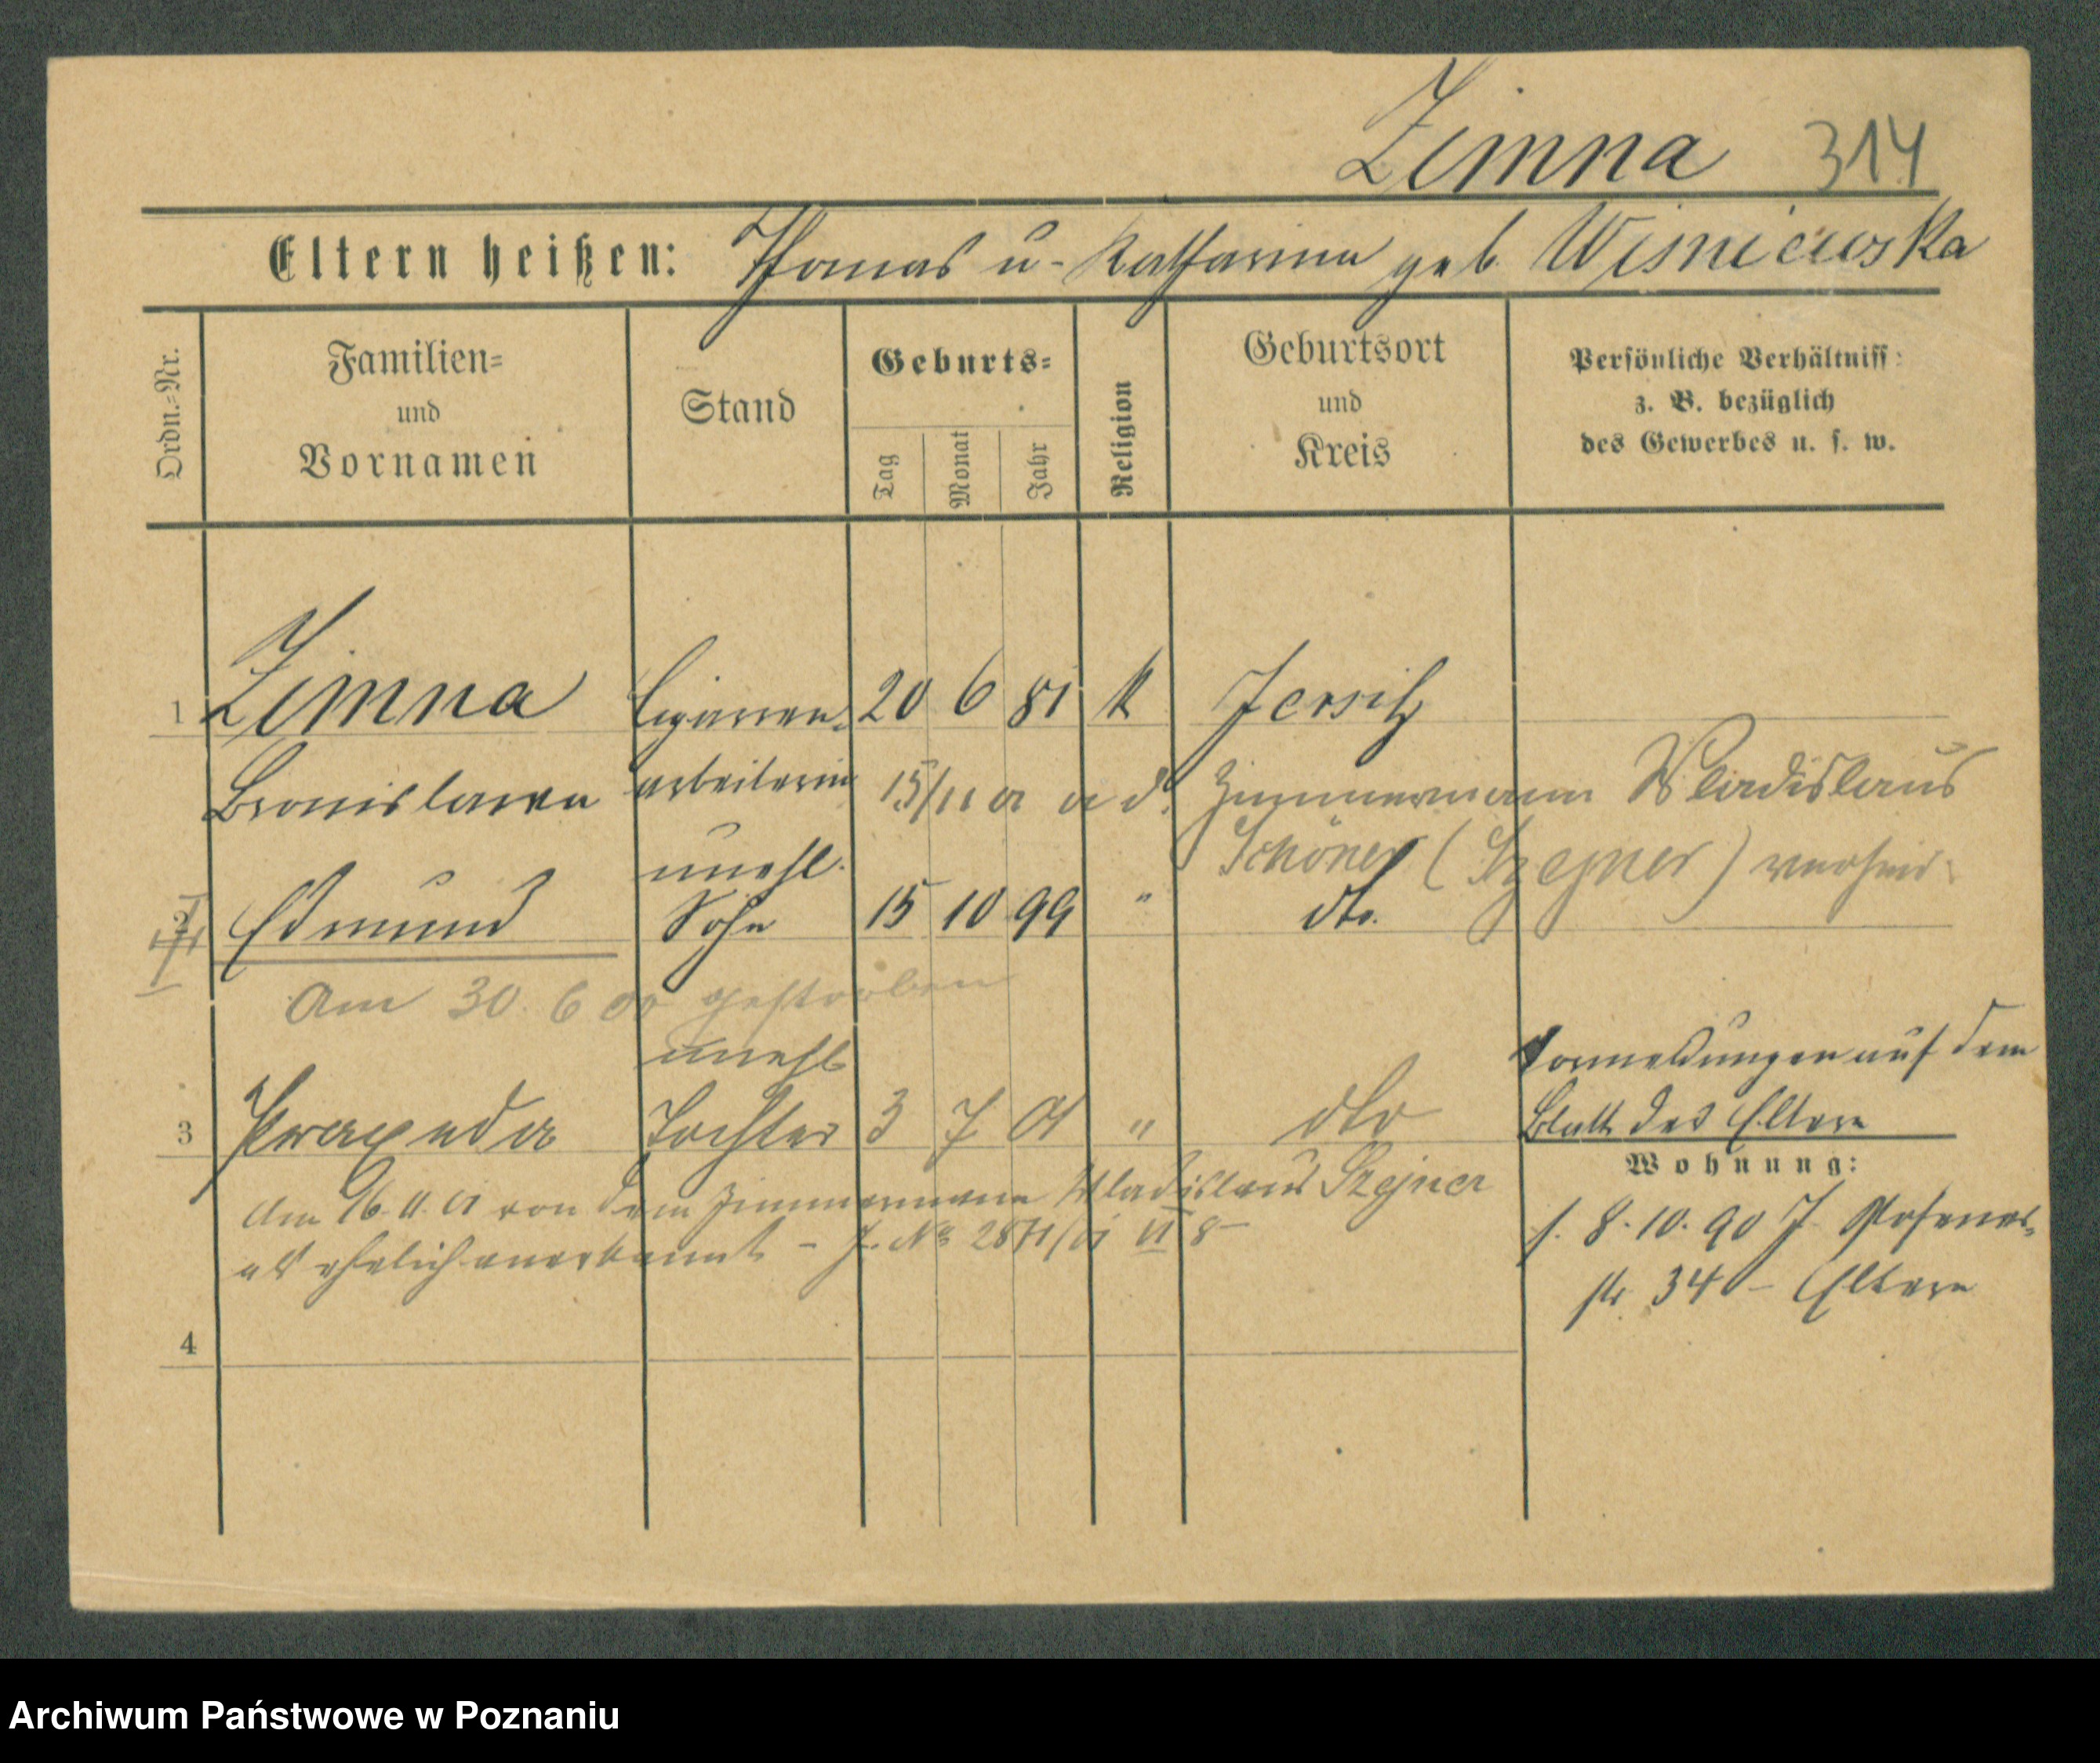 Zimna 314
Eltern heißen: Thomas u. Katharina geb. Wisniewska
Ordn.=Nr.
Familien=
und
Vornamen
Stand
Geburts=
Tag
Monat
Jahr
Religion
Geburtsort
und
Kreis
Persönliche Verhältniss
z. B. bezüglich
des Gewerbes u. s. w.
1 Zimna Cigarren= 20 6 81 k Jersitz
Bronislawa arbeiterin 15/11 01 a d. Zimmermann Wladislaus
Schöner (Szejner) verheir.
unehl.
2 Edmund Sohn 15 10 99 " dto.
Am 30. 6 00 gestorben
unehl
3 Praxeda Tochter 3 7 01 " dto
Am 16. 11. 01 von dem Zimmermann Wladislaus Szejner
als ehelich anerkannt - J. No 2871/01 VI 8
4
Vormeldungen auf dem
Blatt des Eltern
Wohnung:
s. 8. 10. 90 J. Posener=
str. 34 - Eltern
Archiwum Państwowe w Poznaniu